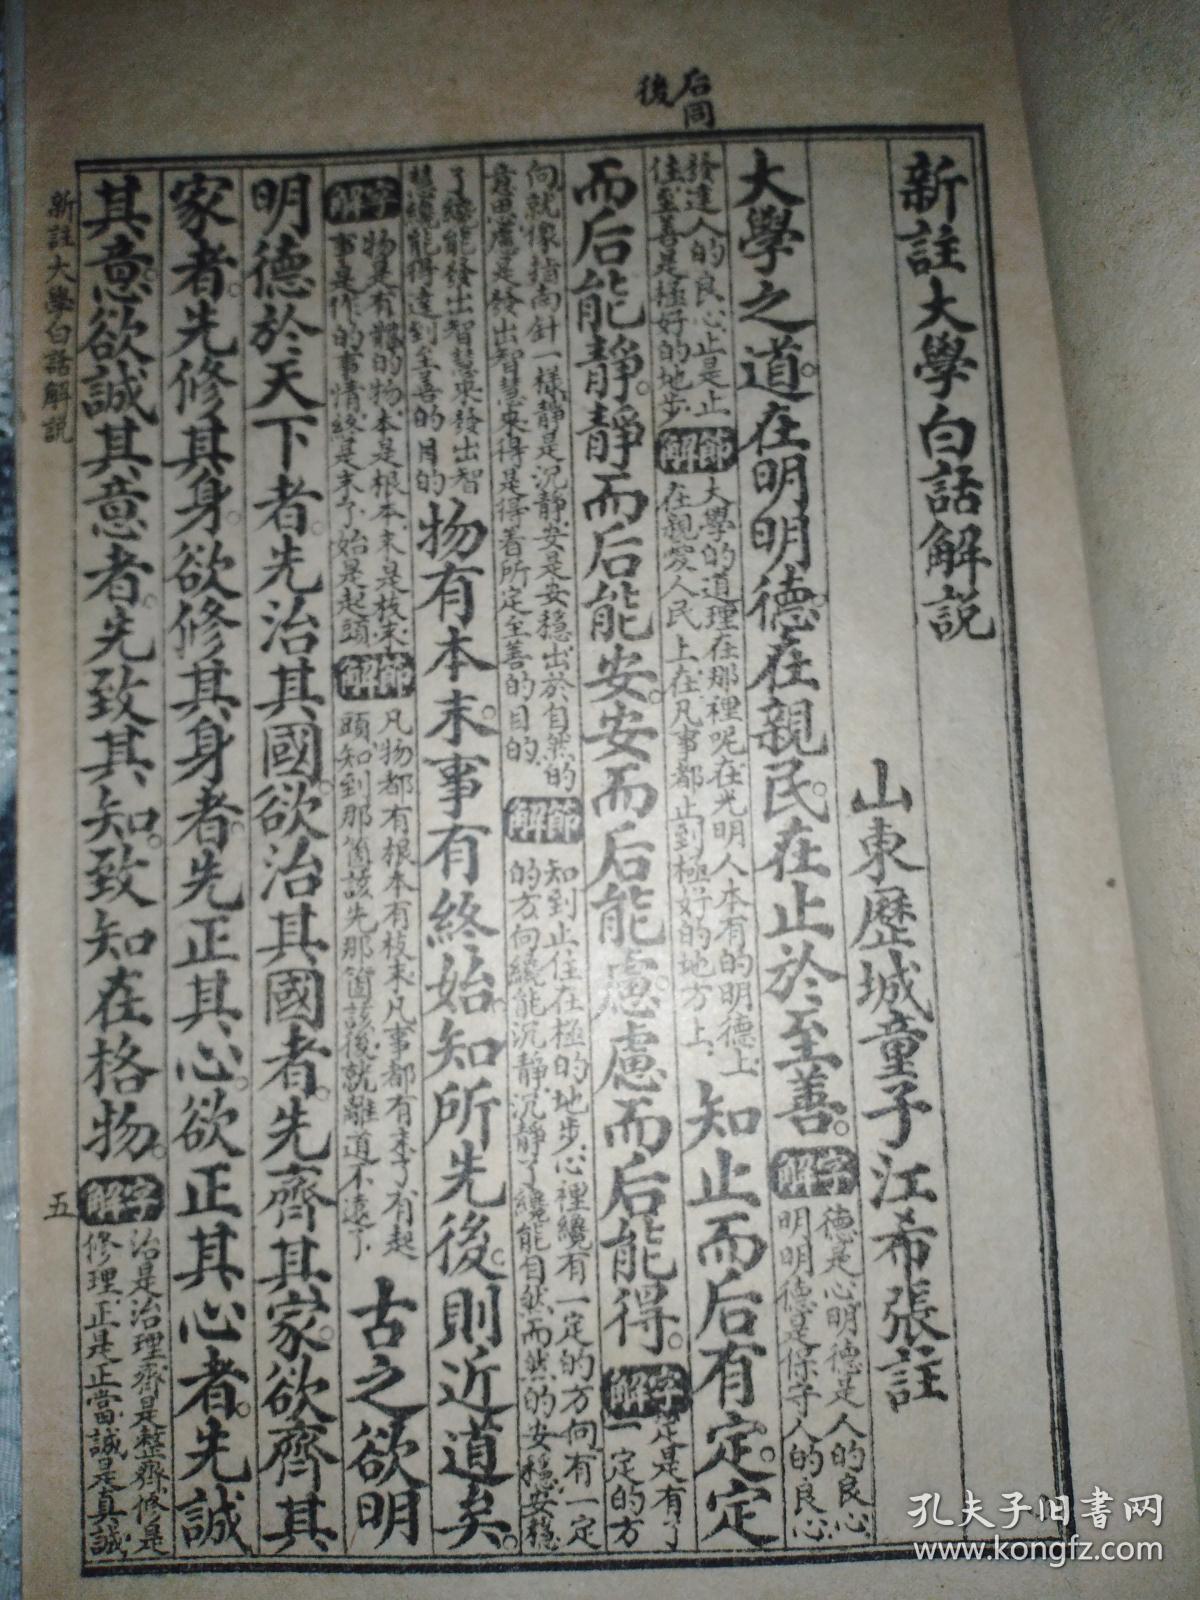 后同
後
新註大學白話解説
山東歷城童子江希張註
大學之道。在明明德。在親民。在止於至善。字解 德是心明德是人的良心
明明德是保守人的良心
發達人的良心止是止
住至善是極好的地步 節解 大學的道理在那裡呢在光明人本有的明德上
在親愛人民上在凡事都止到極好的地方上 知止而后有定。定
而后能靜。靜而后能安。安而后能慮。慮而后能得。字解 定是有了
一定的方
向就像指南針一樣靜是沉靜安是安穩出於自然的
意思慮是發出智慧來得是得着所定至善的目的 節解 知到止住在極的地步心裡纔有一定的方向有一定
的方向纔能沉靜沉靜了纔能自然而然的安穩安穩
了纔能發出智慧來發出智
慧纔能得達到至善的目的 物有本末。事有終始。知所先後。則近道矣。
字解 物是有體的物本是根本末是枝末
事是作的事情終是末了始是起頭 節解 凡物都有根本有枝末凡事都有末了有起
頭知到那箇該先那箇該後就離道不遠了 古之欲明
明德於天下者。先治其國。欲治其國者。先齊其家。欲齊其
家者。先修其身。欲修其身者。先正其心。欲正其心者。先誠
其意。欲誠其意者。先致其知。致知在格物。字解 治是治理齊是整齊修是
修理正是正當誠是真誠
新註大學白話解説
五
孔夫子旧书网
www.kongfz.com